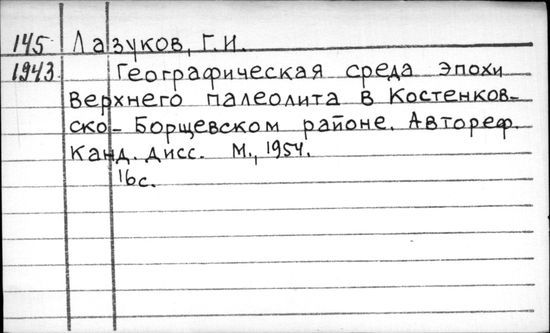 145 Лазуков, Г.И.
1943 Географическая среда эпохи
верхнего палеолита в Костенков-
ско-Борщевском районе. Автореф.
канд. дисс. М., 1954.
16с.